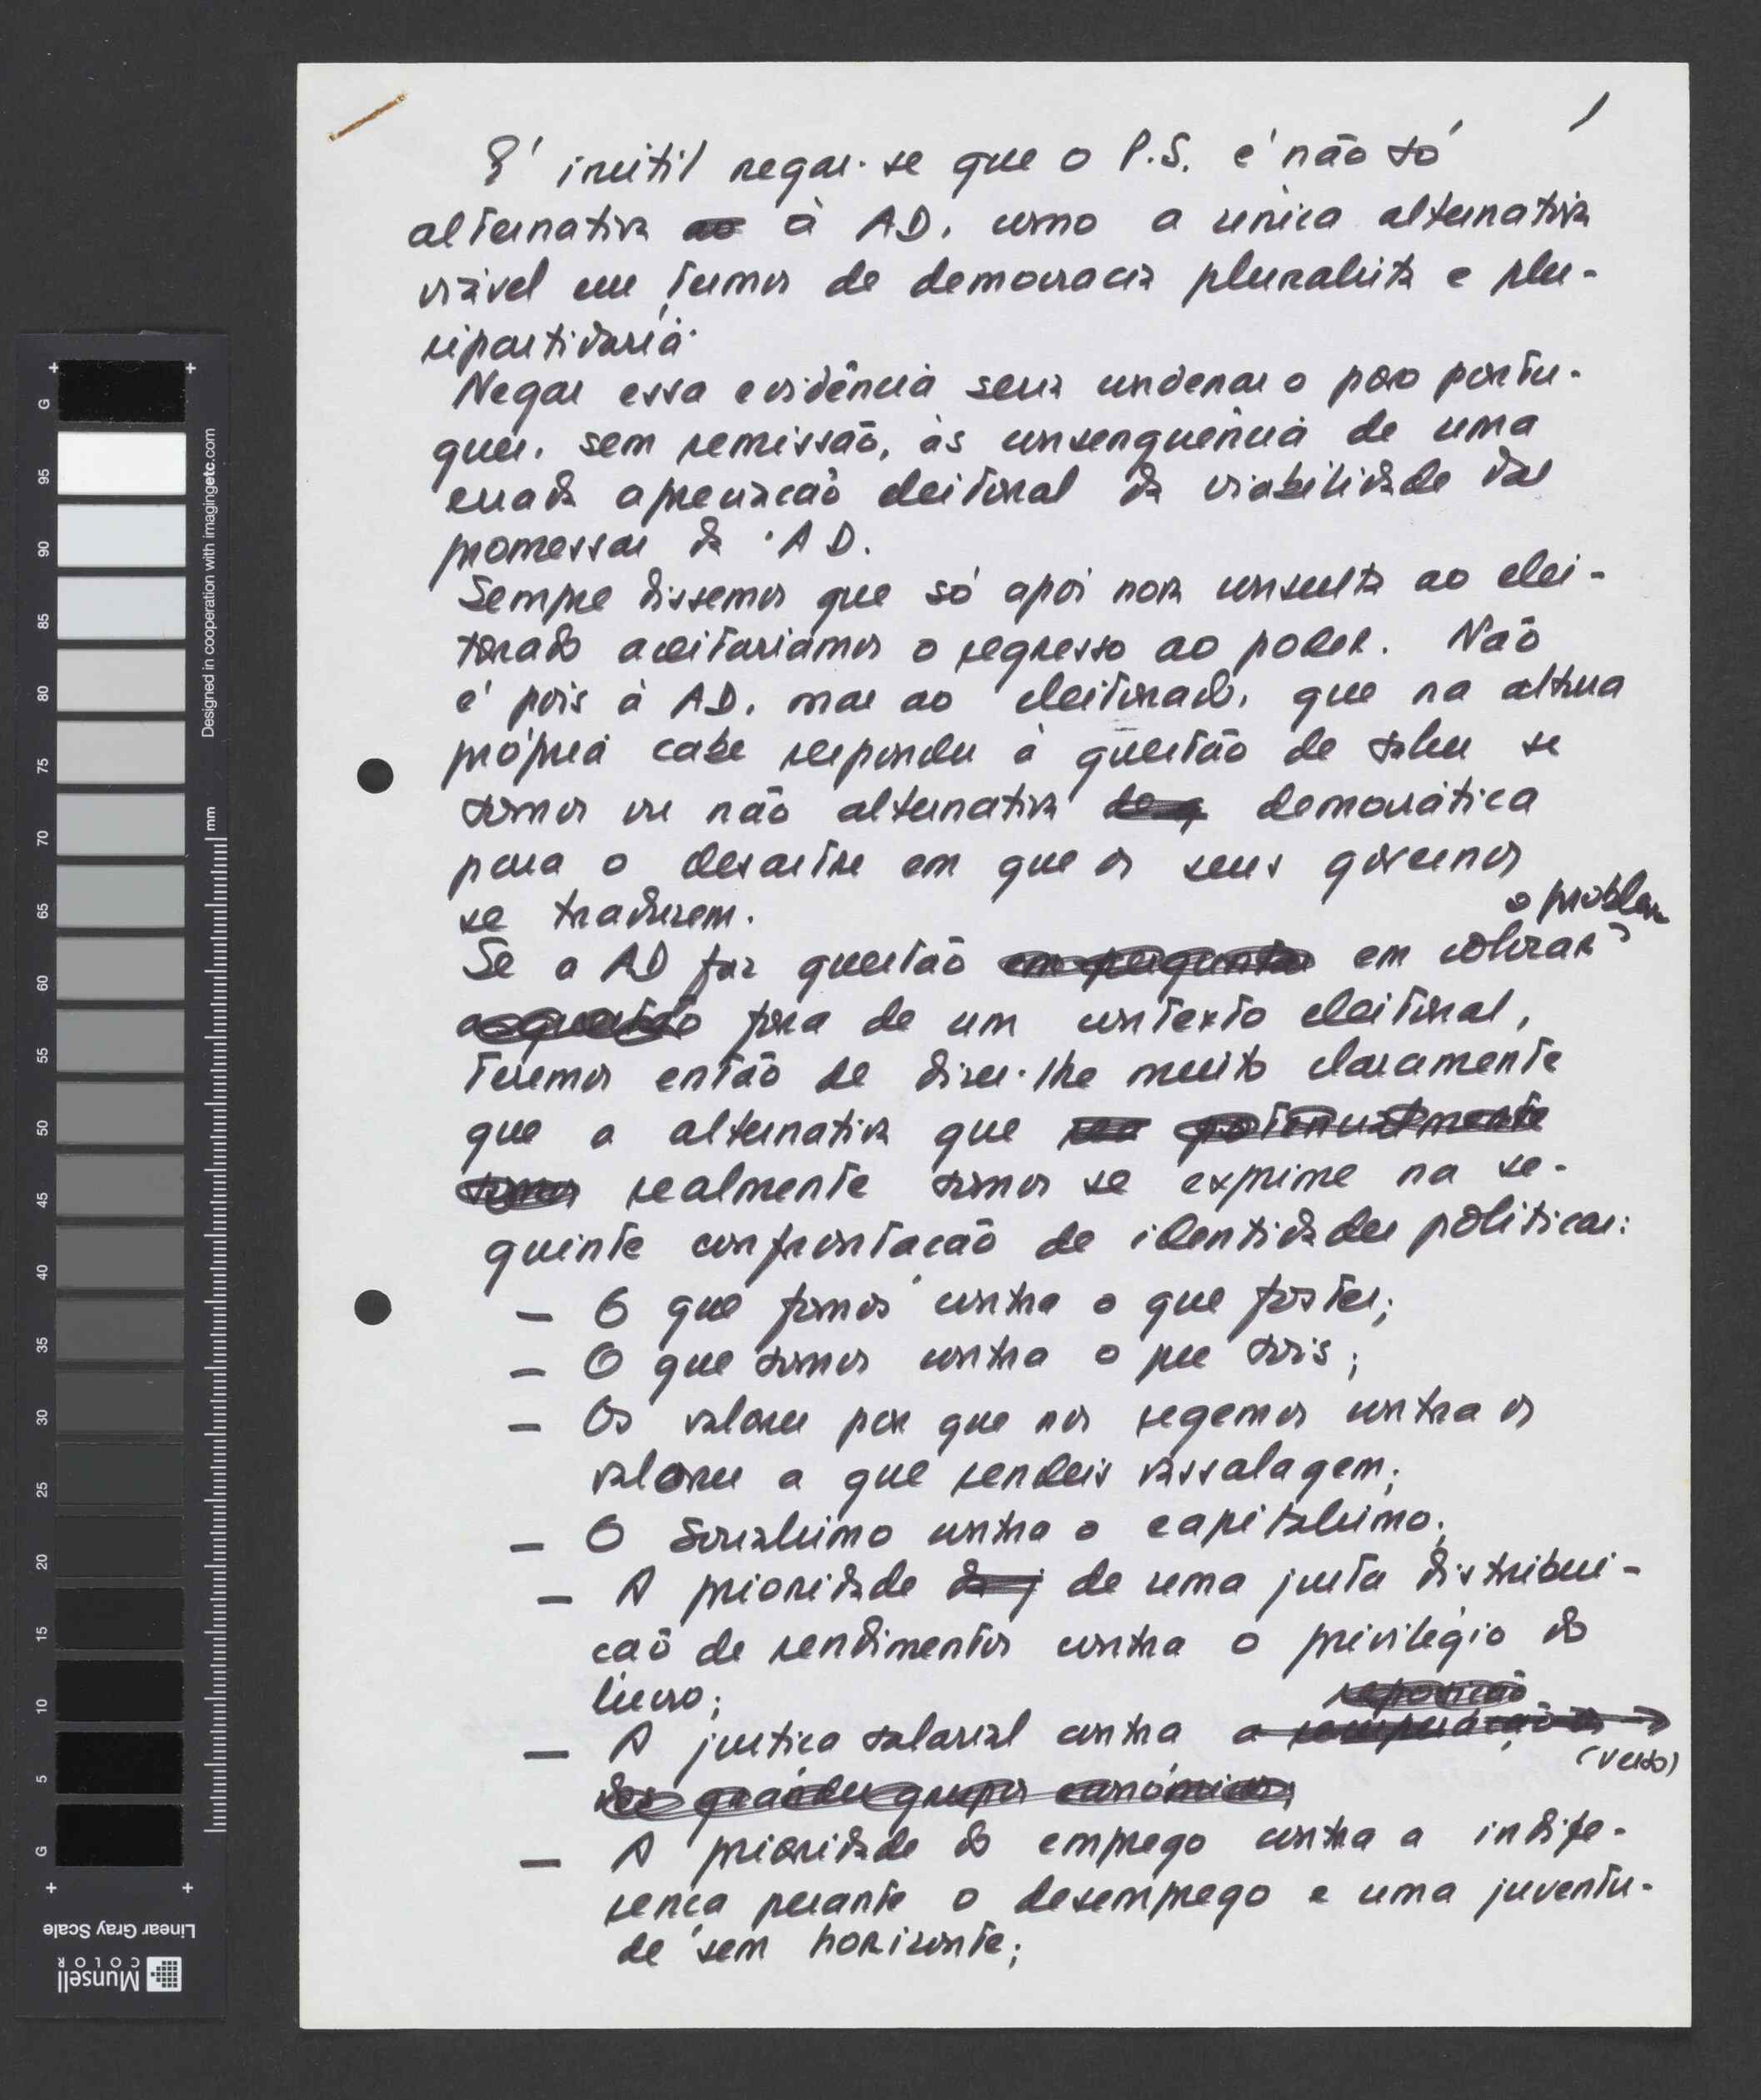 1
É inútil negar-se que o P.S. é não só
alternativa ao à AD, como a única alternativa
viável em termos de democracia pluralista e plu-
ripartidária.
Negar essa evidência seria condenar o povo portu-
guês, sem remissão, às consequências de uma
errada apreciação eleitoral da viabilidade das
promessas da AD.
Sempre dissemos que só após nova consulta ao elei-
torado aceitaríamos o regresso ao poder. Não
é pois à AD, mas ao eleitorado, que na altura
própria cabe responder à questão de saber se
somos ou não alternativa de q democrática
para o desastre em que os seus governos
se traduzem.
o problema
Se a AD faz questão em perguntar em colocar
a questão fora de um contexto eleitoral,
teremos então de dizer-lhe muito claramente
que a alternativa que potencialmente
somos realmente somos se exprime na se-
guinte confrontação de identidades políticas:
— O que fomos contra o que fostes;
— O que somos contra o que sois;
— Os valores por que nos regemos contra os
valores a que rendeis vassalagem;
— O Socialismo contra o capitalismo;
— A prioridade da j de uma justa distribui-
ção de rendimentos contra o privilégio do
lucro;
reposição
— A justiça salarial contra a recuperação
(verso)
dos grandes grupos económicos;
— A prioridade do emprego contra a indife-
rença perante o desemprego e uma juventu-
de sem horizonte;
G
95
90
85
80
75
70
65
60
55
50
45
40
35
30
25
20
15
10
5
G
mm
Designed in cooperation with imagingetc.com
Linear Gray Scale
Munsell
COLOR